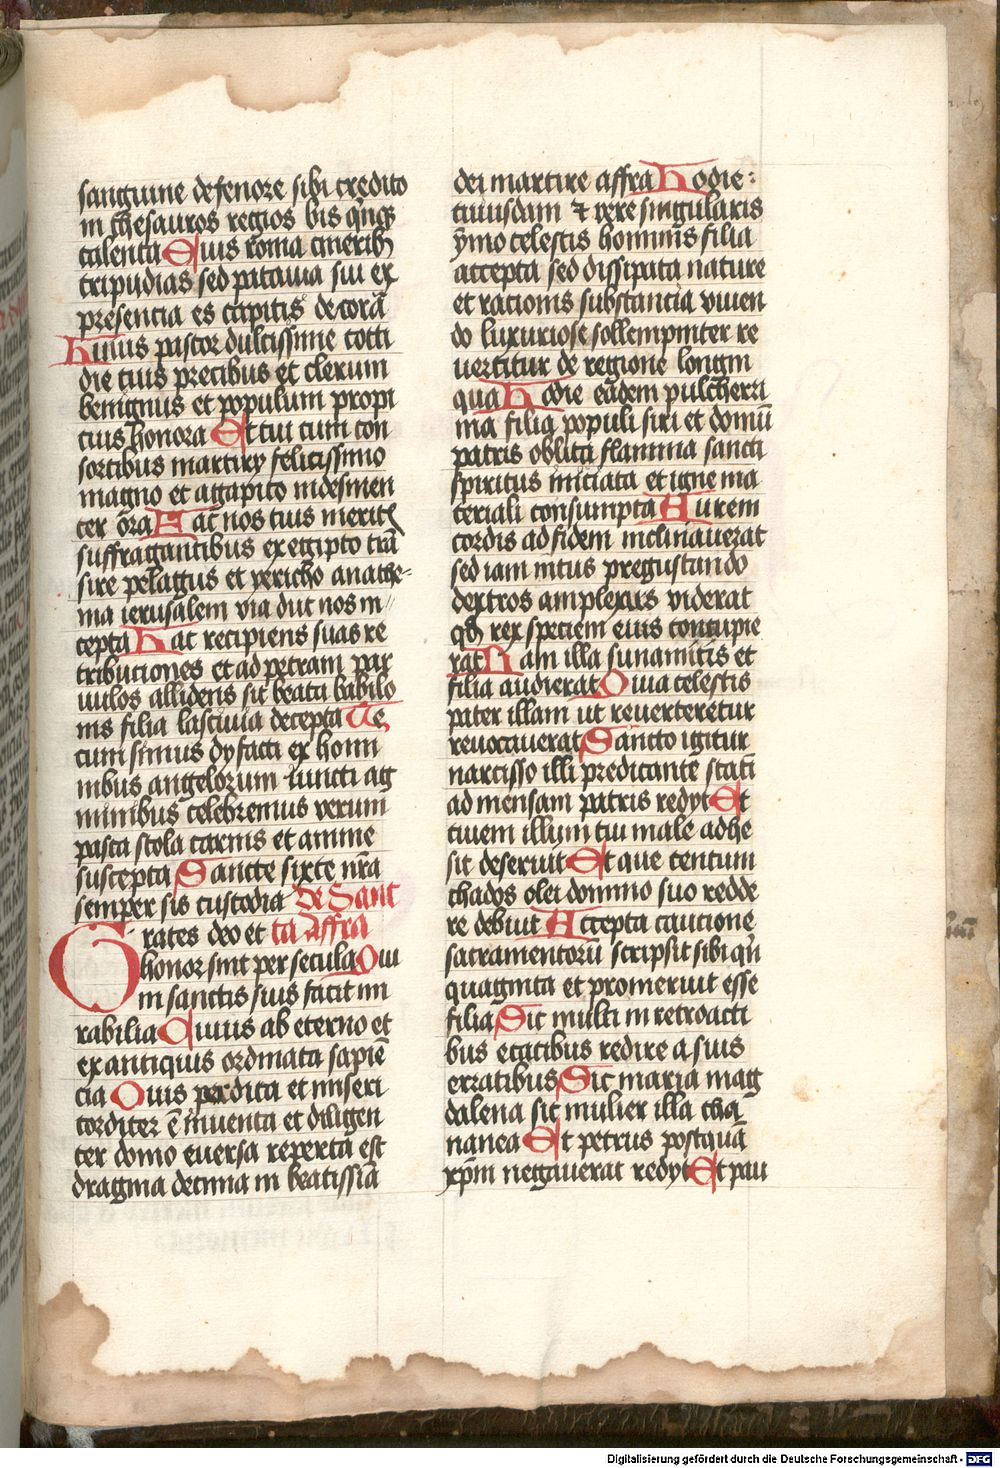 sanguine defenore sibi credito
in thesauros regios bis qīnqꝫ
talenta Cuius roma cineribꝫ
tripudias sed patauia sui ex
presencia es capitis decorā
Huius pastor dulcissime cotti
die tuis precibus et clerum
benignius et populum propi
cius honora Et tui cum con
sortibus martiry felicissimo
magno et agapito indesinen
ter ora Hac nos tuis meritꝭ
suffragantibus ex egipto trā
sire pelagus et yericho anathe=
ma ierusalem via duc nos in
cepta Hac recipiens suas re
tribuciones et ad petram par
uulos allideris sic beata babilo
nis filia lasciuia decepta Te
cum simus dyfacti ex homi
nibus angelorum iuncti ag
minibus celebremus verum
pasca stola carnis et anime
suscepta Sancte sixte nr̄a
semper sis custodia De Sanc
Grates deo et ta Affra
honor sint per secula Qui
in sanctis suis facit mi
rabilia Cuius ab eterno et
ex antiquis ordinata sapiē
cia Ouis perdita et miseri
corditer ē inuenta et diligen
ter domo euersa reperta est
dragma decima in beatissiā
dei martire affra Hodie :
cuiusdam et vere singularis
ymo celestis hominis filia
accepta sed dissipata nature
et racionis substancia viuen
do luxuriose sollempniter re
uertitur de regione longin
qua Hodie eadem pulcherri
ma filia populi siri et domū
patris oblita flamma sancti
spiritus iniciata et igne ma
teriali consumpta Aurem
cordis ad fidem inclinauerat
sed iam intus pregustando
dextros amplexus viderat
qꝫ rex speciem eius concupie
rat Nam illa sunamitis et
filia audierat Quia celestis
pater illam ut reverteretur
reuocauerat Sancto igitur
narcisso illi predicante stati
ad mensam patris redyt Et
ciuem illum cui male adhe
sit deseruit Et que centum
chados olei domino suo redde
re debuit Accepta caucione
sacramentorū scripsit sibi qīn
quaginta et promeruit esse
filia Sic multi in retroacti
bus etatibus redire a suis
erratibus Sic maria mag
dalena sic mulier illa cha
nanea Et petrus postquā
xp̄m negauerat redyt Et pau
Digitalisierung gefördert durch die Deutsche Forschungsgemeinschaft - DFG